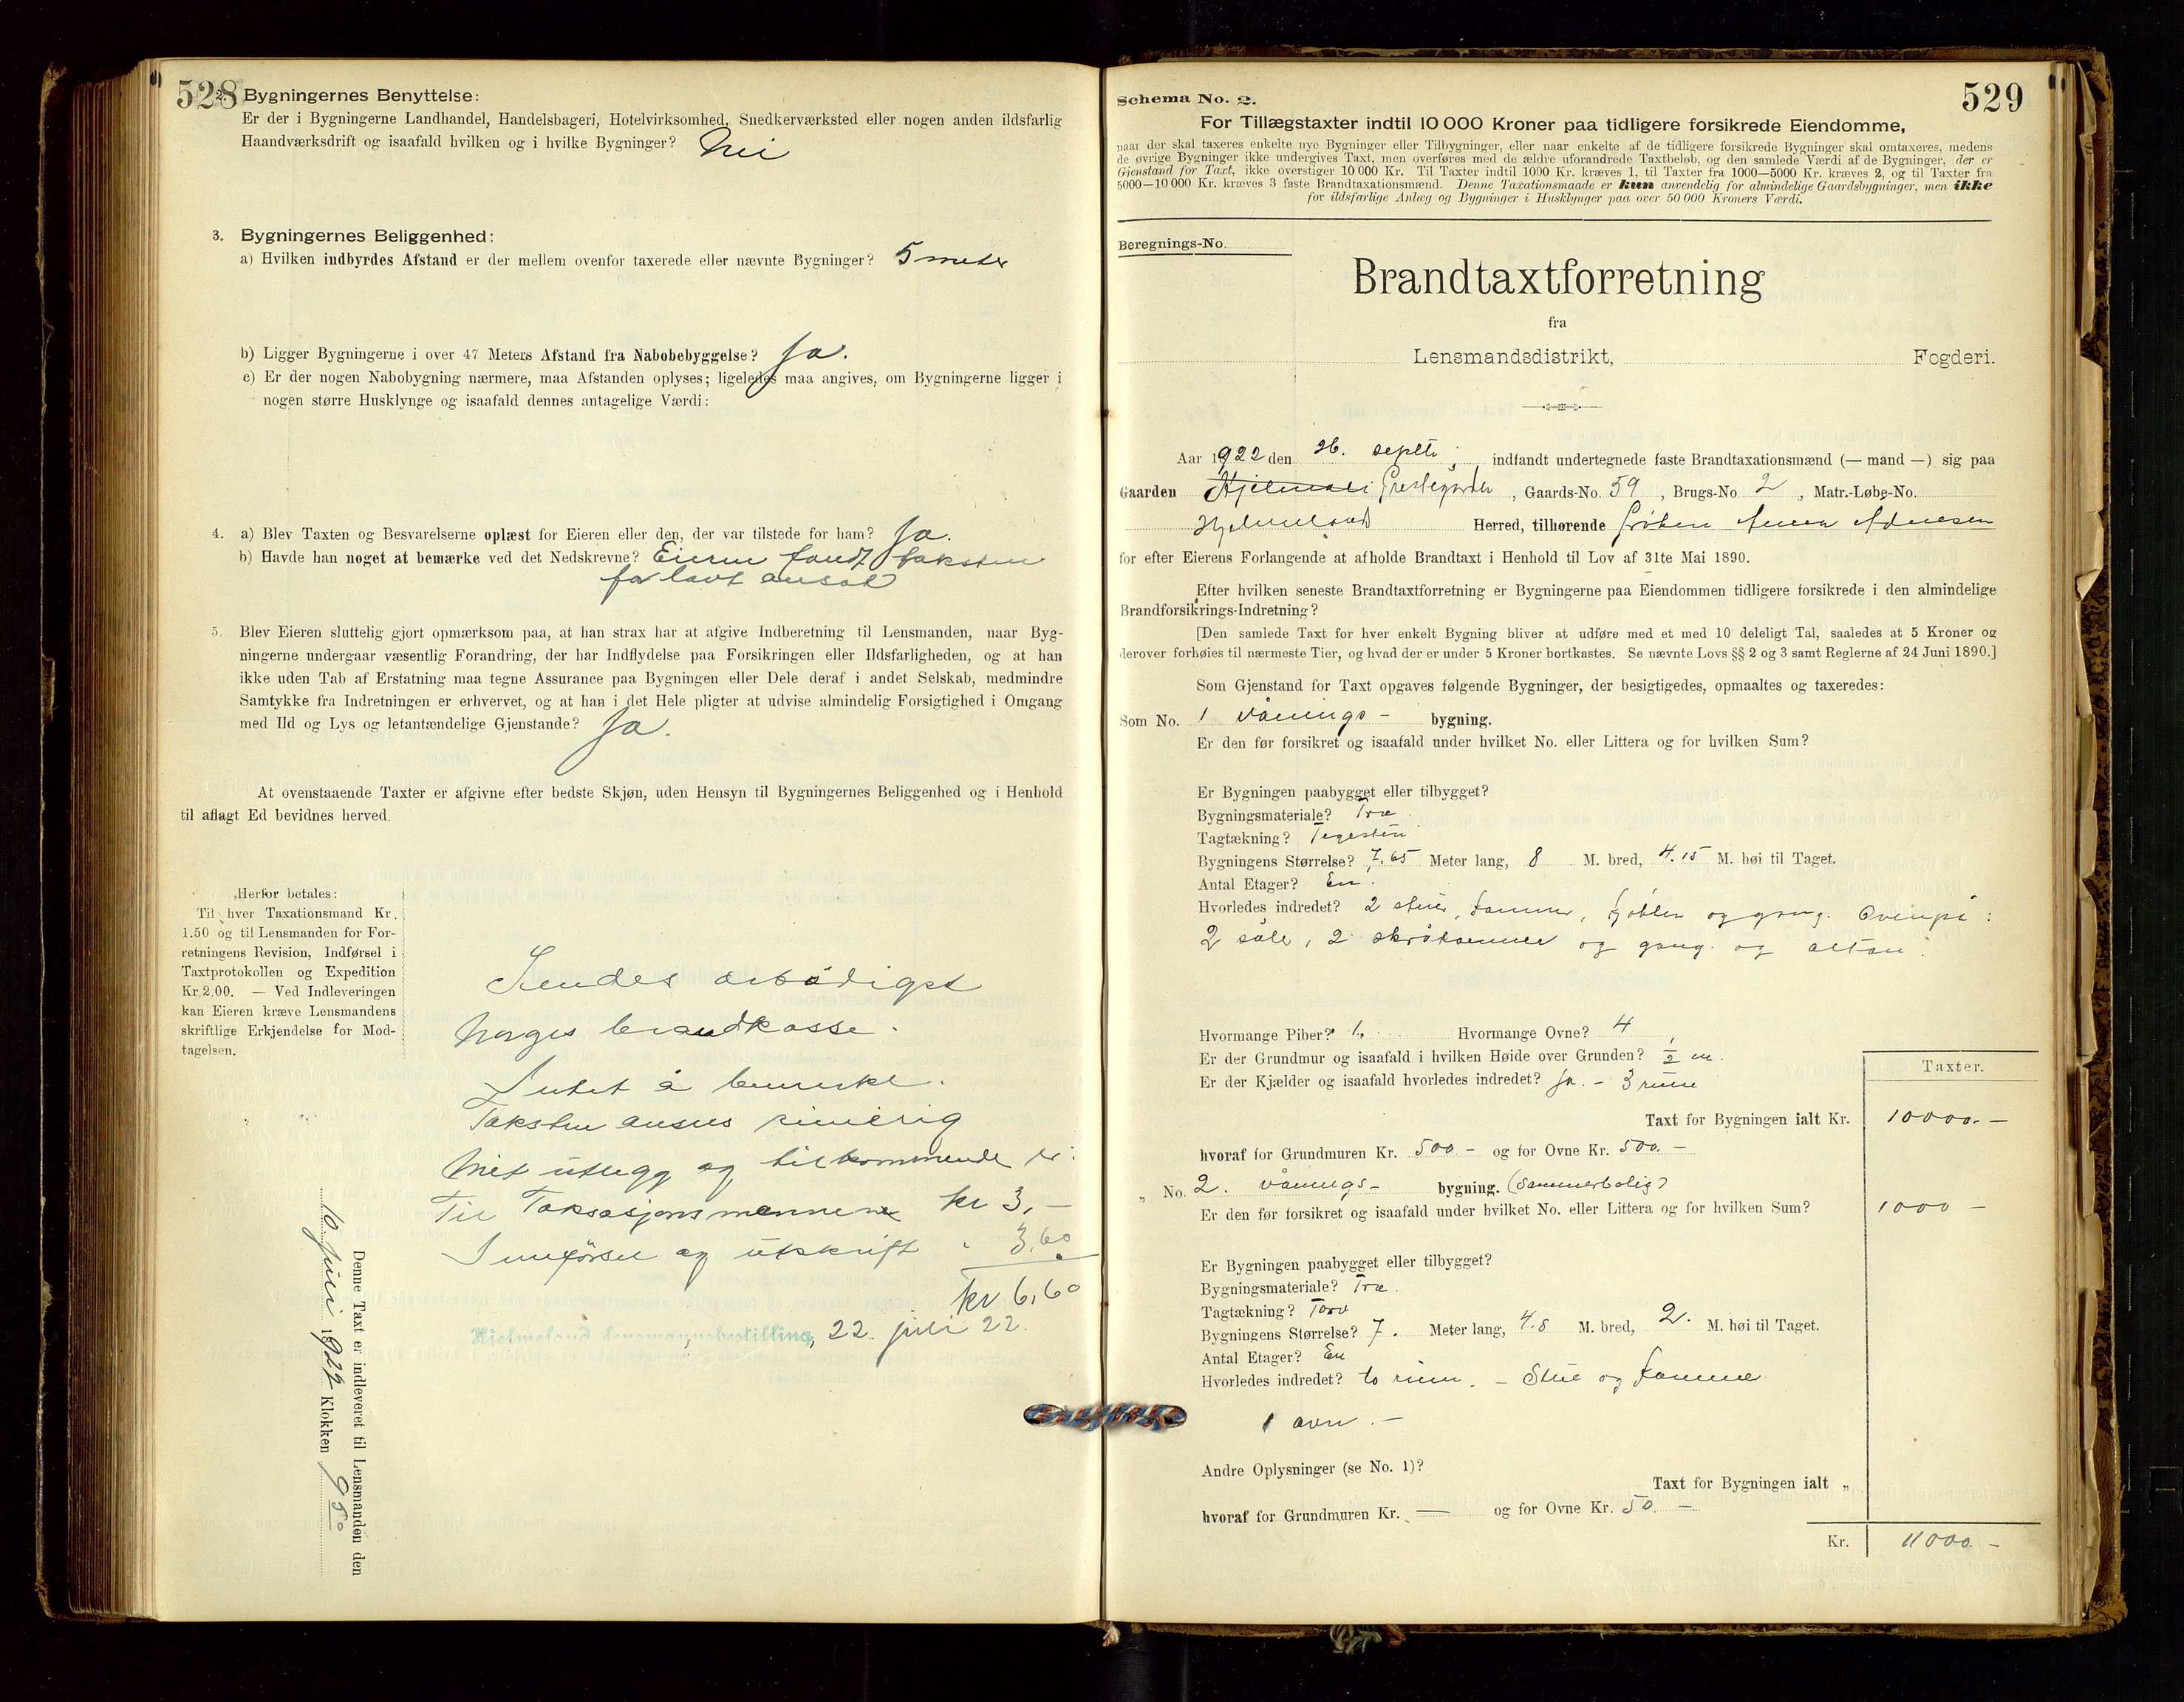 528
2. Bygningernes Benyttelse:
Er der i Bygningerne Landhandel, Handelsbageri, Hotelvirksomhed, Snedkerværksted eller nogen anden ildsfarlig
Haandværksdrift og isaafald hvilken og i hvilke Bygninger? Nei
3. Bygningernes Beliggenhed:
a) Hvilken indbyrdes Afstand er der mellem ovenfor taxerede eller nævnte Bygninger? 5 meter
b) Ligger Bygningerne i over 47 Meters Afstand fra Nabobebyggelse? Ja.
c) Er der nogen Nabobygning nærmere, maa Afstanden oplyses; ligeledes maa angives, om Bygningerne ligger i
nogen større Husklynge og isaafald dennes antagelige Værdi:
4. a) Blev Taxten og Besvarelserne oplæst for Eieren eller den, der var tilstede for ham? Ja.
b) Havde han noget at bemærke ved det Nedskrevne? Eieren fandt taksten
for lavt ansat
5. Blev Eieren sluttelig gjort opmærksom paa, at han strax har at afgive Indberetning til Lensmanden, naar Byg-
ningerne undergaar væsentlig Forandring, der har Indflydelse paa Forsikringen eller Ildsfarligheden, og at han
ikke uden Tab af Erstatning maa tegne Assurance paa Bygningen eller Dele deraf i andet Selskab, medmindre
Samtykke fra Indretningen er erhvervet, og at han i det Hele pligter at udvise almindelig Forsigtighed i Omgang
med Ild og Lys og letantændelige Gjenstande? Ja.
At ovenstaaende Taxter er afgivne efter bedste Skjøn, uden Hensyn til Bygningernes Beliggenhed og i Henhold
til aflagt Ed bevidnes herved.
Herfor betales:
Til hver Taxationsmand Kr.
1.50 og til Lensmanden for For-
retningens Revision, Indførsel i
Taxtprotokollen og Expedition
Kr. 2.00. — Ved Indleveringen
kan Eieren kræve Lensmandens
skriftlige Erkjendelse for Mod-
tagelsen.
Sendes ærbødigst
Norges brandkasse.
Intet å bemerke.
Taksten anses rimelig
Mit utlegg og tilkommende er:
Til Taksasjonsmennene kr 3,—
Innførsel og utskrift " 3,60
kr 6,60
Hjelmeland lensmannsbestilling, 22. juli 22.
Denne Taxt er indleveret til Lensmanden den
10 juli 1922 Klokken 9 50
529
Schema No. 2.
For Tillægstaxter indtil 10 000 Kroner paa tidligere forsikrede Eiendomme,
naar der skal taxeres enkelte nye Bygninger eller Tilbygninger, eller naar enkelte af de tidligere forsikrede Bygninger skal omtaxeres, medens
de øvrige Bygninger ikke undergives Taxt, men overføres med de ældre uforandrede Taxtbeløb, og den samlede Værdi af de Bygninger, der er
Gjenstand for Taxt, ikke overstiger 10 000 Kr. Til Taxter indtil 1000 Kr. kræves 1, til Taxter fra 1000—5000 Kr. kræves 2, og til Taxter fra
5000—10 000 Kr. kræves 3 faste Brandtaxationsmænd. Denne Taxationsmaade er kun anvendelig for almindelige Gaardsbygninger, men ikke
for ildsfarlige Anlæg og Bygninger i Husklynger paa over 50 000 Kroners Værdi.
Beregnings-No.
Brandtaxtforretning
fra
Lensmandsdistrikt, Fogderi.
Aar 1922 den 26. septbr, indfandt undertegnede faste Brandtaxationsmænd (— mand —) sig paa
Gaarden Prestegarden, Gaards-No. 59, Brugs-No. 2, Matr.-Løbe-No.
Hjelmeland Herred, tilhørende frøken Anna
for efter Eierens Forlangende at afholde Brandtaxt i Henhold til Lov af 31te Mai 1890.
Efter hvilken seneste Brandtaxtforretning er Bygningerne paa Eiendommen tidligere forsikrede i den almindelige
Brandforsikrings-Indretning?
[Den samlede Taxt for hver enkelt Bygning bliver at udføre med et med 10 deleligt Tal, saaledes at 5 Kroner og
derover forhøies til nærmeste Tier, og hvad der er under 5 Kroner bortkastes. Se nævnte Lovs §§ 2 og 3 samt Reglerne af 24 Juni 1890.]
Som Gjenstand for Taxt opgaves følgende Bygninger, der besigtigedes, opmaaltes og taxeredes:
Som No. 1 vånings- bygning.
Er den før forsikret og isaafald under hvilket No. eller Littera og for hvilken Sum?
Er Bygningen paabygget eller tilbygget?
Bygningsmateriale? Træ
Tagtækning? Teglsten
Bygningens Størrelse? 7.65 Meter lang, 8 M. bred, 4.15 M. høi til Taget.
Antal Etager? En.
Hvorledes indredet? 2 stuer, kammer, kjøkken og gang. Ovenpå:
2 sale, 2 skråkammer og gang. og altan.
Hvormange Piber? 1. Hvormange Ovne? 4
Er der Grundmur og isaafald i hvilken Høide over Grunden? ½ m.
Er der Kjælder og isaafald hvorledes indredet? Ja. - 3 rum
Taxter.
Taxt for Bygningen ialt Kr. 10000.-
hvoraf for Grundmuren Kr. 500 - og for Ovne Kr. 500.-
" No. 2. vånings- bygning. (Sommerbolig)
Er den før forsikret og isaafald under hvilket No. eller Littera og for hvilken Sum? 1000 -
Er Bygningen paabygget eller tilbygget?
Bygningsmateriale? Træ.
Tagtækning? Torv
Bygningens Størrelse? 7. Meter lang, 4.8 M. bred, 2. M. høi til Taget.
Antal Etager? En
Hvorledes indredet? to rum. - Stue og kammer.
1 ovn. -
Andre Oplysninger (se No. 1)?
Taxt for Bygningen ialt "
hvoraf for Grundmuren Kr. — og for Ovne Kr. 50. -
Kr. 11000 -